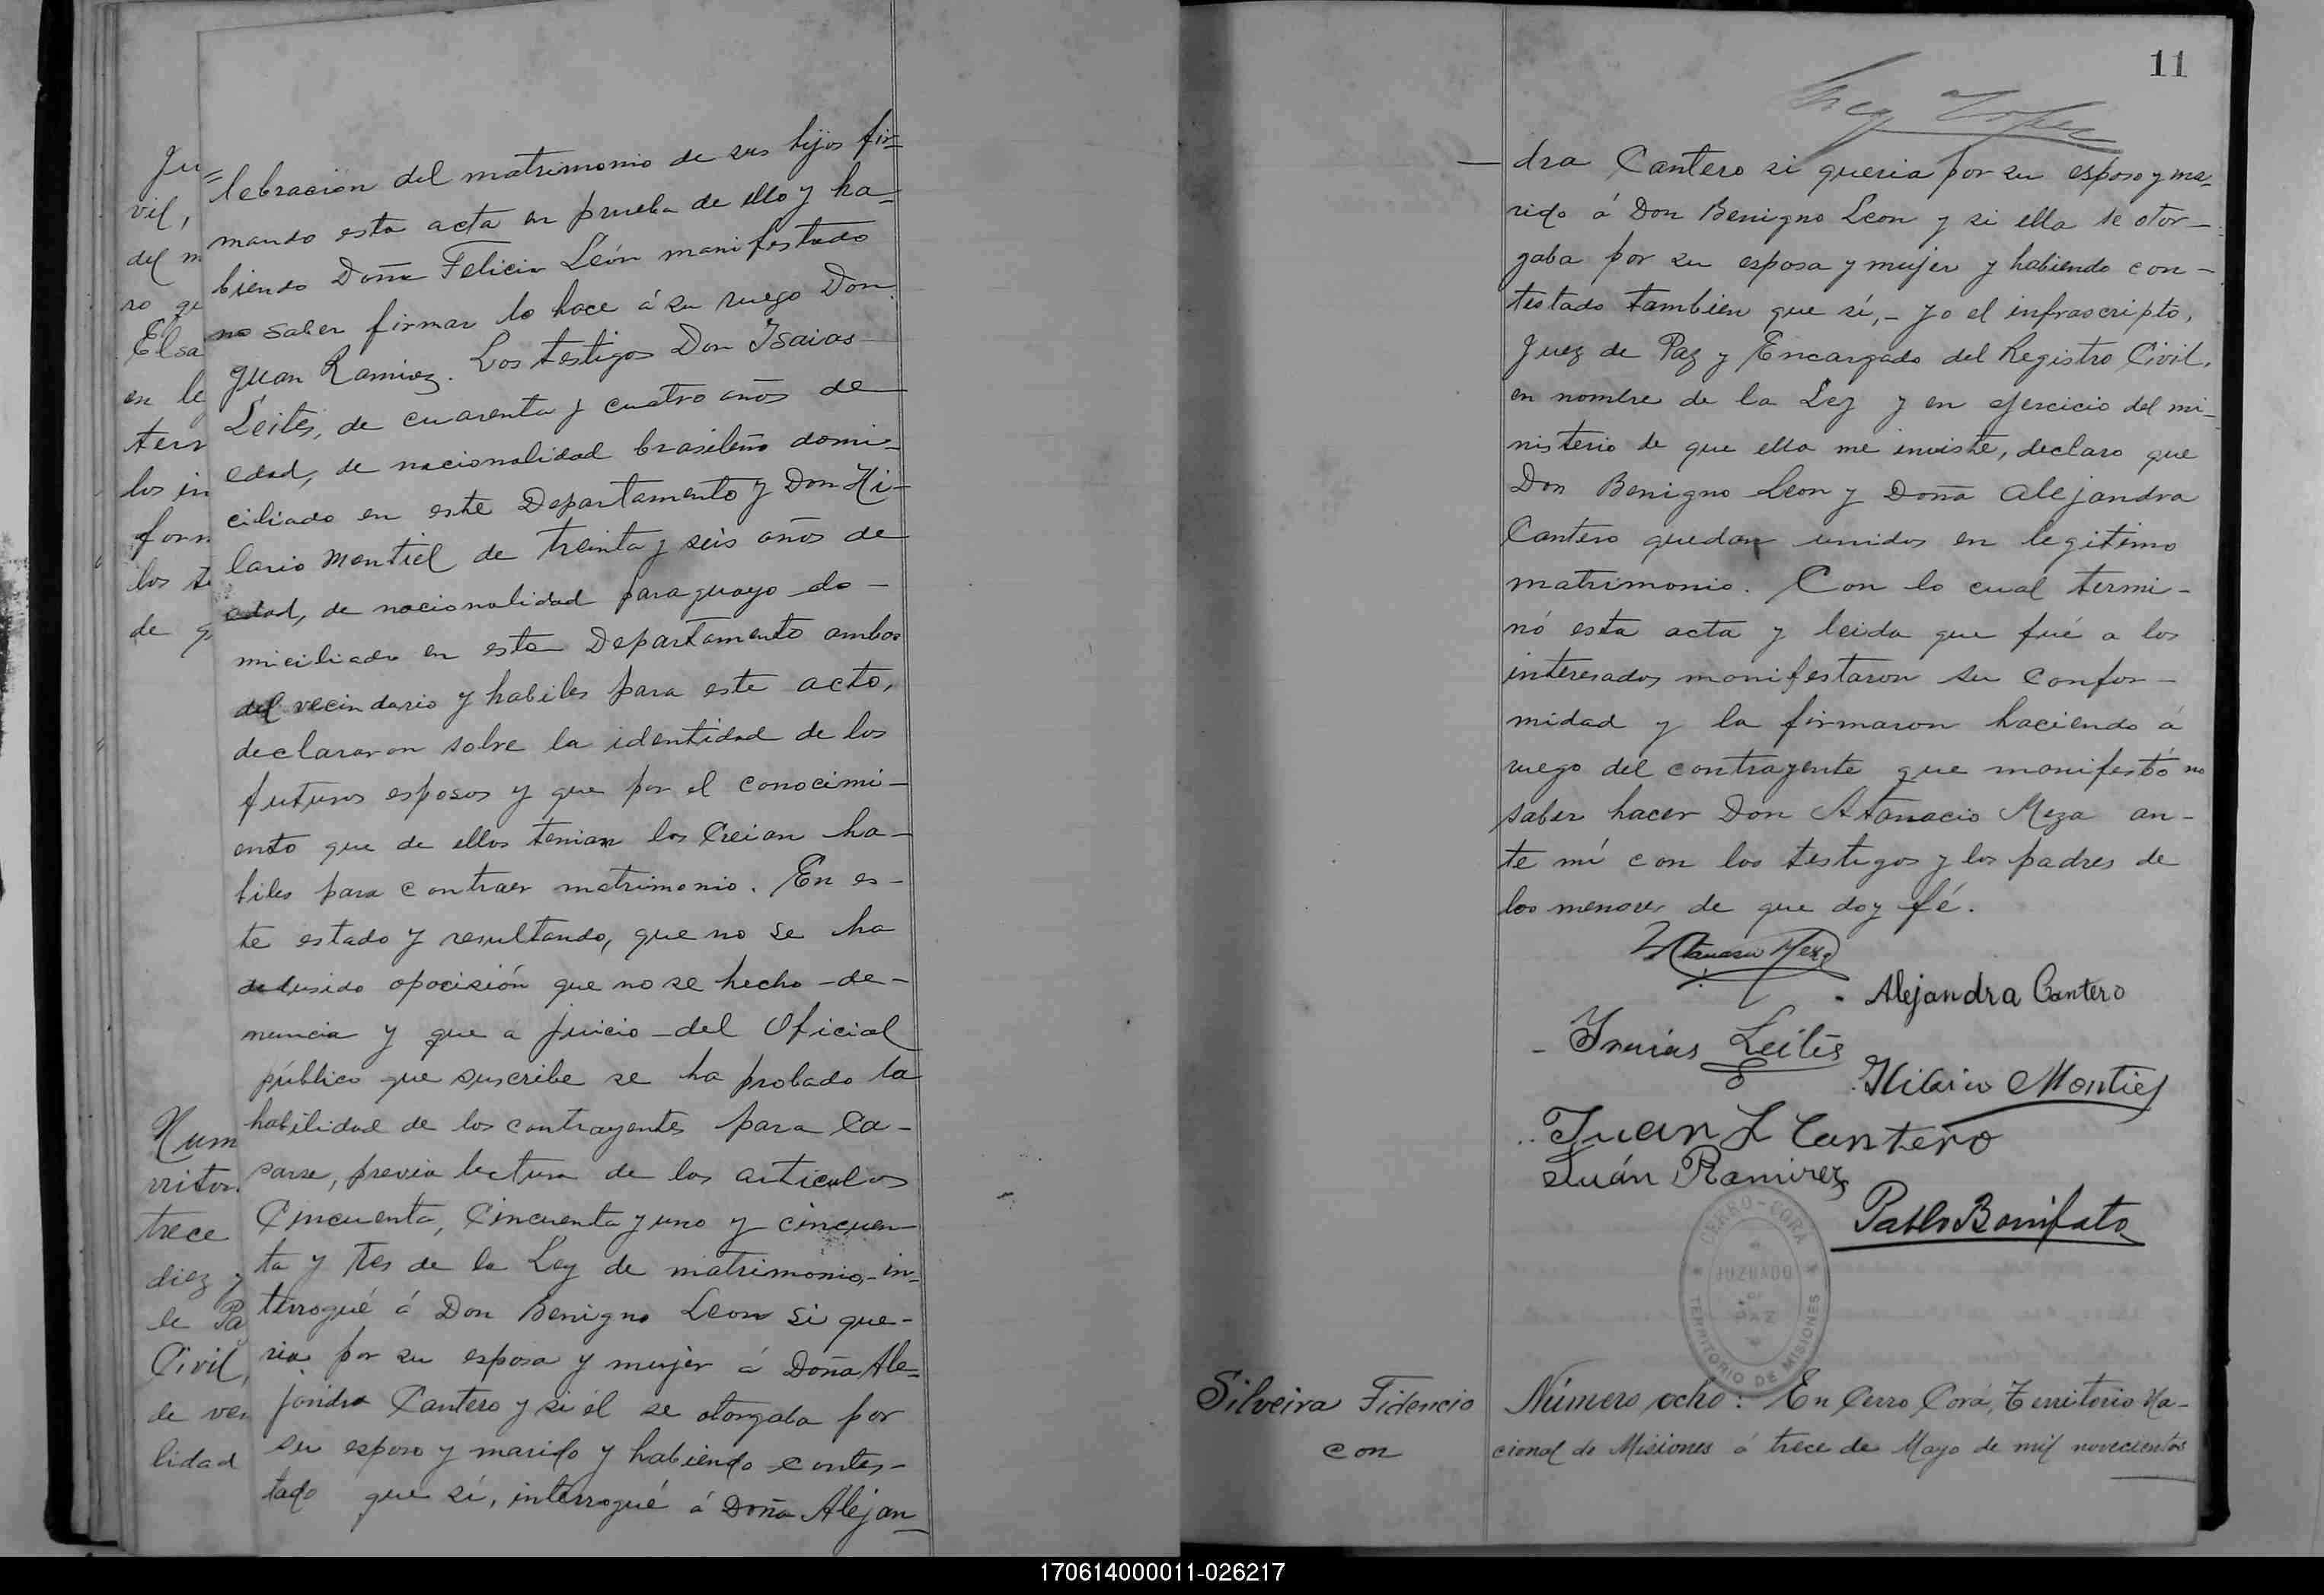 lebración del matrimonio de sus hijos fir=
mando esta acta en prueba de ello y ha=
biendo Doña Felicia León manifestado
no saber firmar lo hace á su ruego Don
Juan Ramirez. Los testigos Don Isaias
Leites, de cuarenta y cuatro años de
edad, de nacionalidad brasileño domi-
ciliado en este Departamento y Don Hi-
lario Montiel de treinta y seis años de
edad, de nacionalidad paraguayo do-
miciliado en este Departamento ambos
del vecindario y habiles para este acto,
declararon sobre la identidad de los
futuros esposos y que por el conocimi-
ento que de ellos tenian los creian ha-
biles para contraer matrimonio. En es-
te estado y resultando, que no se ha
deducido oposición que no se hecho de-
nuncia y que a juicio del Oficial
público que suscribe se ha probado la
habilidad de los contrayentes para ca-
sarse, previa lectura de los articulos
Cincuenta, Cincuenta y uno y cincuen-
ta y tres de la Ley de matrimonio, in=
terrogué á Don Benigno Leon si que-
ria por su esposa y mujer á Doña Ale=
jandra Cantero y si él se otorgaba por
su esposo y marido y habiendo contes-
tado que sí, interrogué á Doña Alejan
Ju
vil,
del m
ro qu
Elsa
en le
terr
los in
form
los te
de q
Num
rritor
trece
diez y
le Pa
Civil,
de vei
lidad
11
dra Cantero si queria por su esposo y ma-
rido á Don Benigno Leon y si ella se otor-
gaba por su esposa y mujer y habiendo con-
testado tambien que sí,- yo el infrascripto,
Juez de Paz y Encargado del Registro Civil,
en nombre de la Ley y en ejercicio del mi-
nisterio de que ella me inviste, declaro que
Don Benigno Leon y Doña Alejandra
Cantero quedan unidos en legitimo
matrimonio. Con lo cual termi-
nó esta acta y leida que fué a los
interesados manifestaron su confor-
midad y la firmaron haciendo á
ruego del contrayente que manifestó no
saber hacer Don Atanacio Meza an-
te mí con los testigos y los padres de
los menores de que doy fé.
Atanacio Meza
Alejandra Cantero
Isaias Leites
Hilario Montiel
Juan L Cantero
Juán Ramirez
Pablo Bonifato
CERRO-CORA
JUZGADO
DE
PAZ
TERRITORIO DE MISIONES
Silveira Fidencio
con
Número ocho: En Cerro Corá, Territorio Na-
cional de Misiones á trece de Mayo de mil novecientos
170614000011-026217